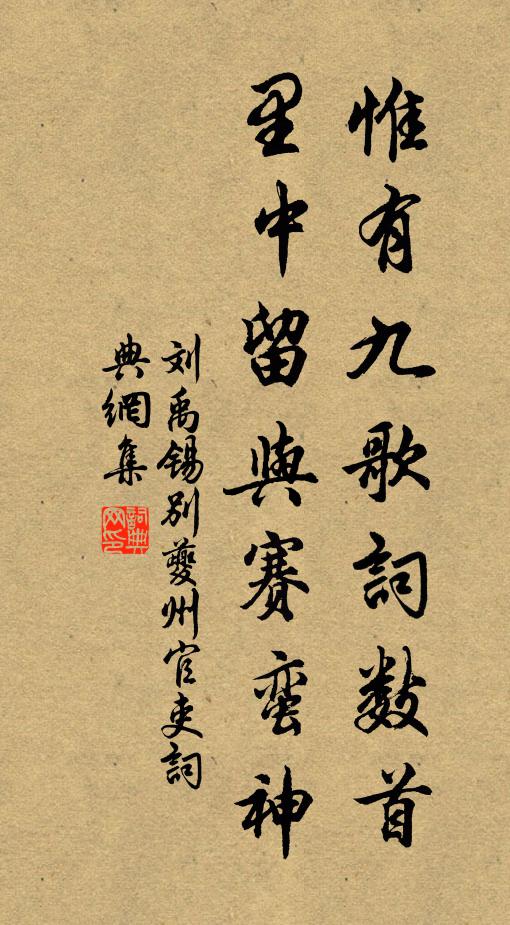 惟有九歌詞数首
里中留與賽蛮神
刘禹锡别夔州官吏詞
典網集
詞典網印